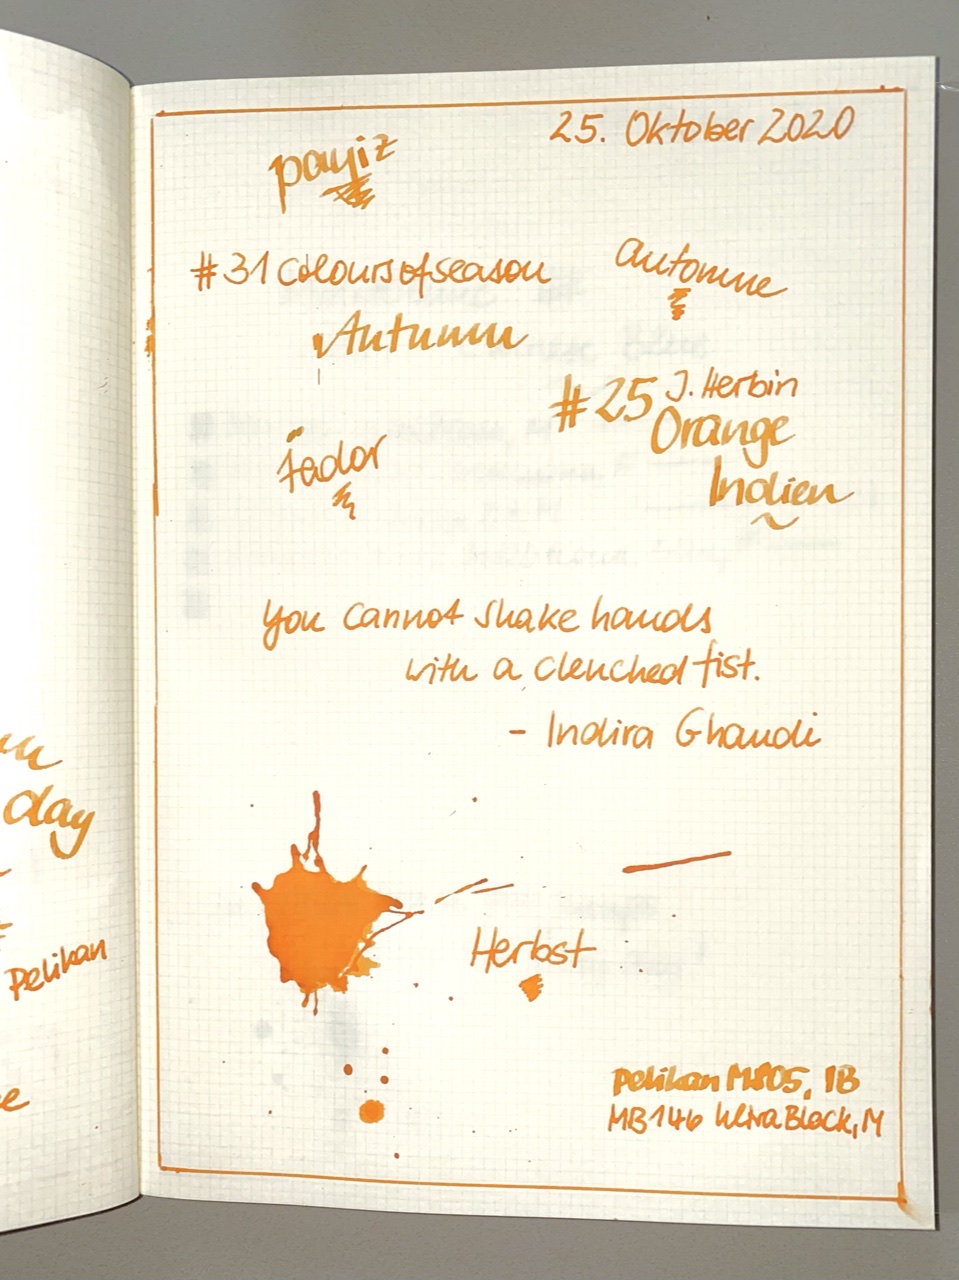 25. Oktober 2020
payiz
#31 coloursofseason
automne
Autumn
#25 J. Herbin
Orange
Indien
you cannot shake hands
with a clenched fist.
- Indira Ghandi
Herbst
Pelikan M805, IB
MB146 UltraBlack, M
day
Pelikan